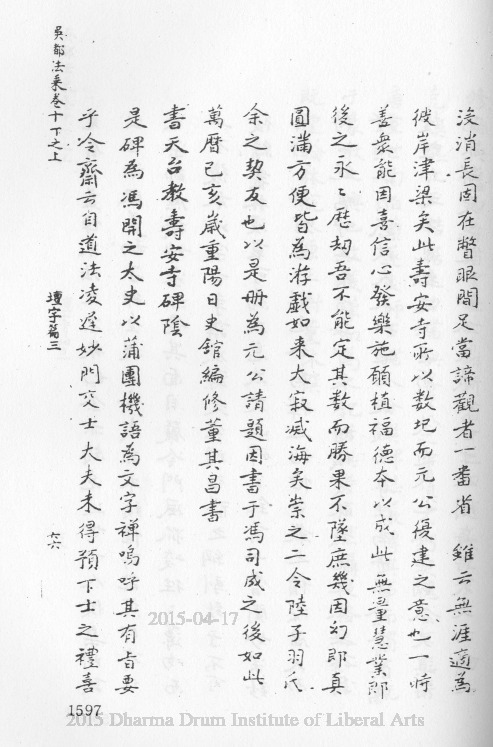 沒消長固在瞥眼間足當諦觀者一番省 雖云無涯適為
彼岸津梁矣此壽安寺所以数圮而元公復建之意也一時
善衆能因喜信心發樂施願植福德本以成此無量慧業即
後之永〻歷劫吾不能定其数而勝果不墜庶幾因幻即真
圓滿方便皆為游戲如来大寂滅海矣崇之二令陸子羽氏
余之契友也以是册為元公請題因書于馮司成之後如此
萬曆己亥嵗重陽日史館編修董其昌書
書天台教壽安寺碑陰
是碑為馮開之太史以蒲團機語為文字禅嗚呼其有旨要
乎令齋云自道法凌遲妙門交士大夫未得預下士之禮喜
吳都法乗卷十下之上
壇宇篇三
六六
1597
2015-04-17
2015 Dharma Drum Institute of Liberal Arts